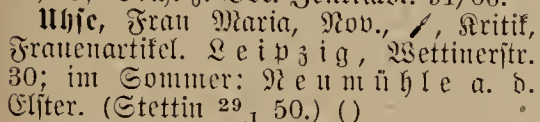 Uhse, Frau Maria, Nov., /, Kritik,
Frauenartikel. Leipzig, Wettinerstr.
30; im Sommer: Neumühle a. d.
Elster. (Stettin 29/1 50.) ()